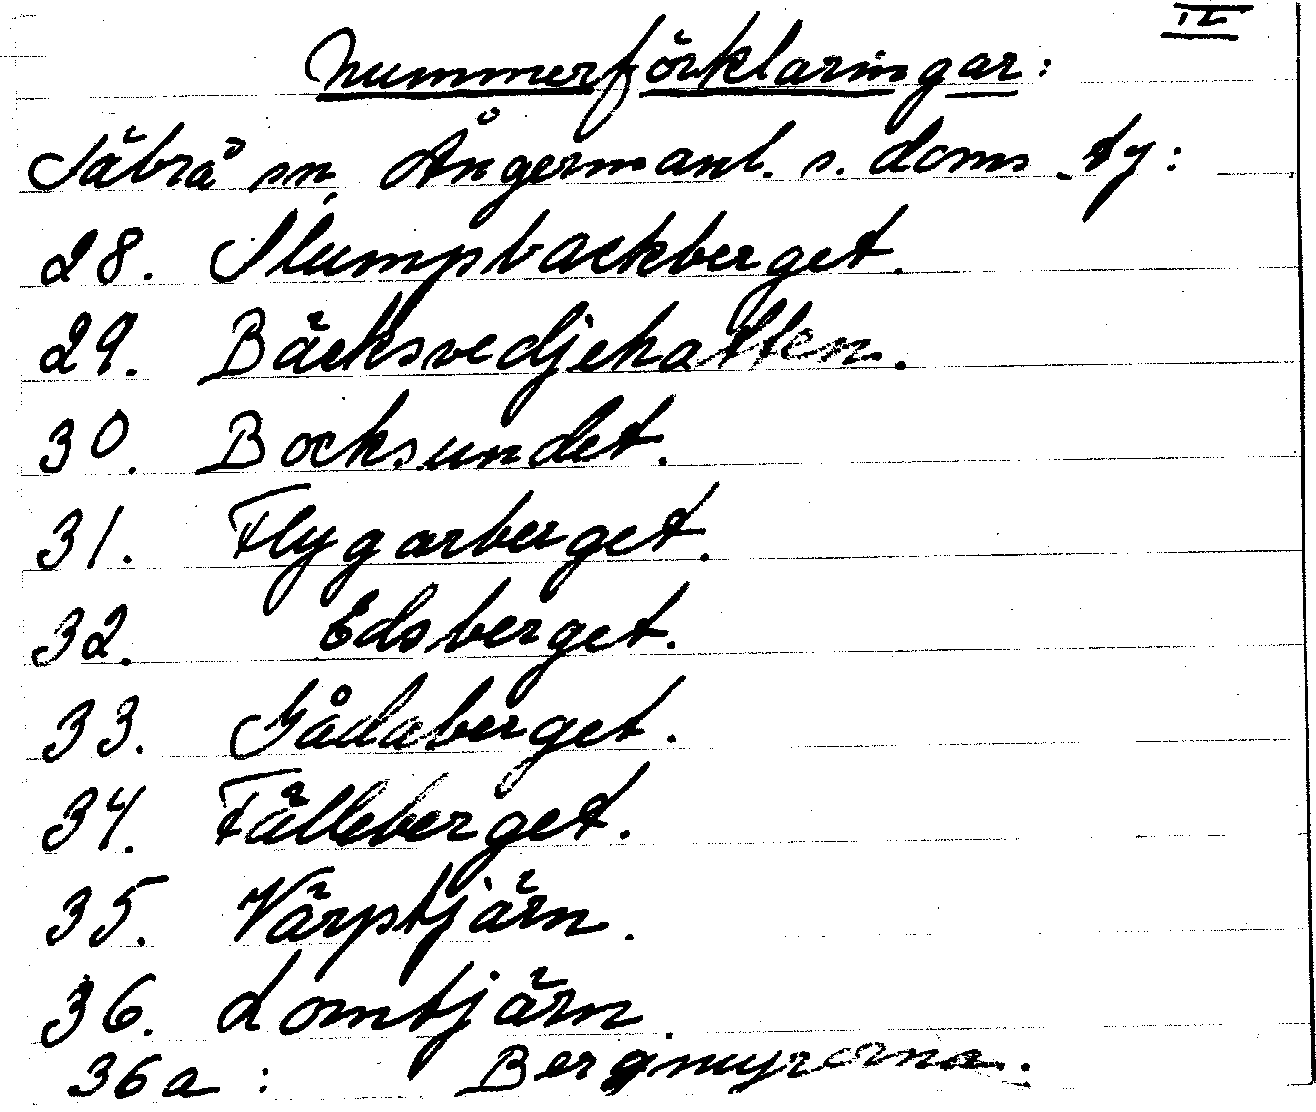 II
Nummerförklaringar:
Säbrå sn. Ångermanl. s. doms. ty:
28. Slumpbackberget.
29. Bäcksvedjehatten.
30. Bocksundet.
31. Flygarberget.
32. Edsberget.
33. Gådaberget.
34. Fälleberget.
35. Värptjärn.
36. Lomtjärn.
36a: Bergmyrorna.